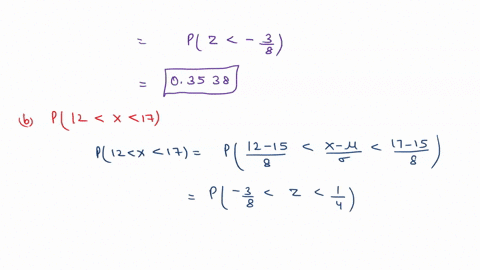 = P(Z < -3/8)
= 0.3538
(b) P(12 < x < 17)
P(12 < x < 17) = P((12-15)/8 < (x-μ)/σ < (17-15)/8)
= P(-3/8 < z < 1/4)